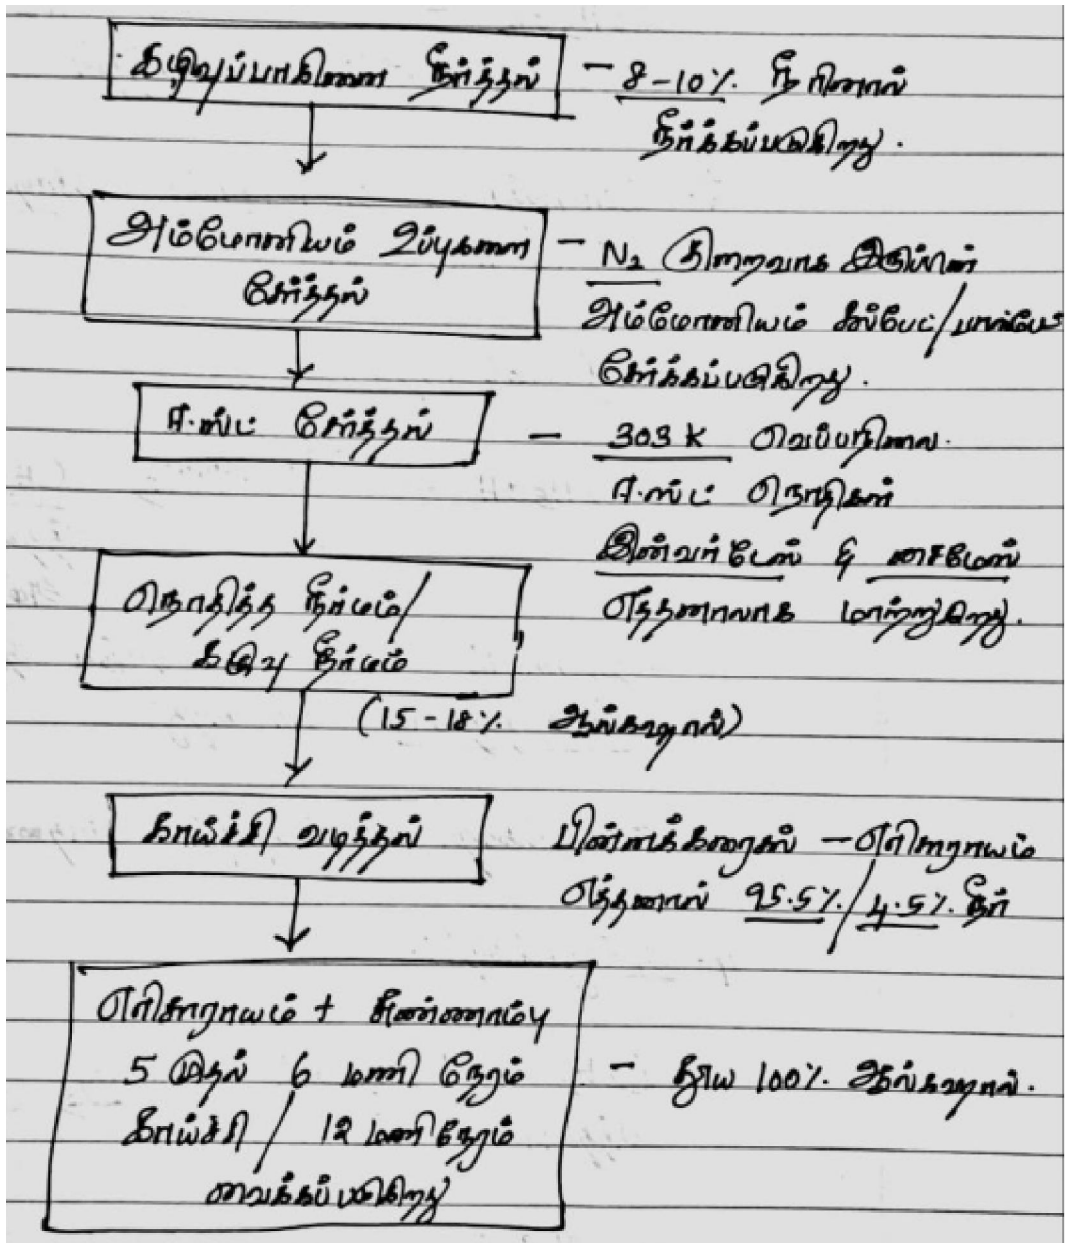 கழிவுப்பாகினை நீர்த்தல் - 8-10% நீரினால்
நீர்க்கப்படுகிறது.
அம்மோனியம் உப்புகளை
சேர்த்தல்
- N₂ குறைவாக இருப்பின்
அம்மோனியம் சல்பேட்/பாஸ்பேட்
சேர்க்கப்படுகிறது.
ஈஸ்ட் சேர்த்தல்
- 303 K வெப்பநிலை.
ஈஸ்ட் நொதிகள்
இன்வர்டேஸ் & சைமேஸ்
எத்தனாலாக மாற்றுகிறது.
நொதித்த நீர்மம்/
கழுவு நீர்மம்
(15-18% ஆல்கஹால்)
காய்ச்சி வடித்தல்
பின்னக்கரைசல் - எரிசாராயம்
எத்தனால் 95.5%/4.5% நீர்
எரிசாராயம் + சுண்ணாம்பு
5 முதல் 6 மணி நேரம்
காய்ச்சி / 12 மணி நேரம்
வைக்கப்படுகிறது
- தூய 100% ஆல்கஹால்.